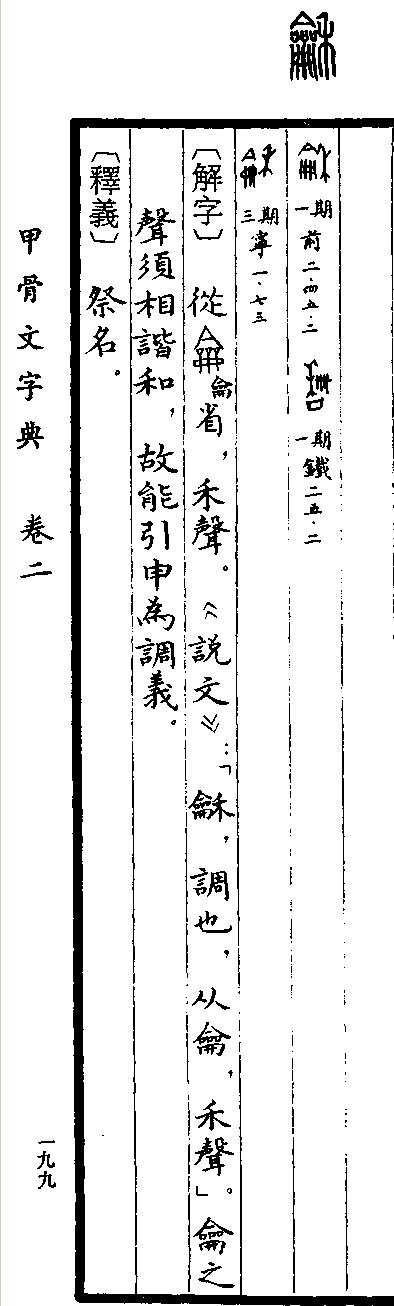 龢
一期 前二·四五·二 一期 鐵二五·二
三期 寧一·七三
〔解字〕 從龠省,禾聲。《說文》:「龢,調也,从龠,禾聲」。龠之
聲須相諧和,故能引申為調義。
〔釋義〕 祭名。
甲骨文字典 卷二
一九九